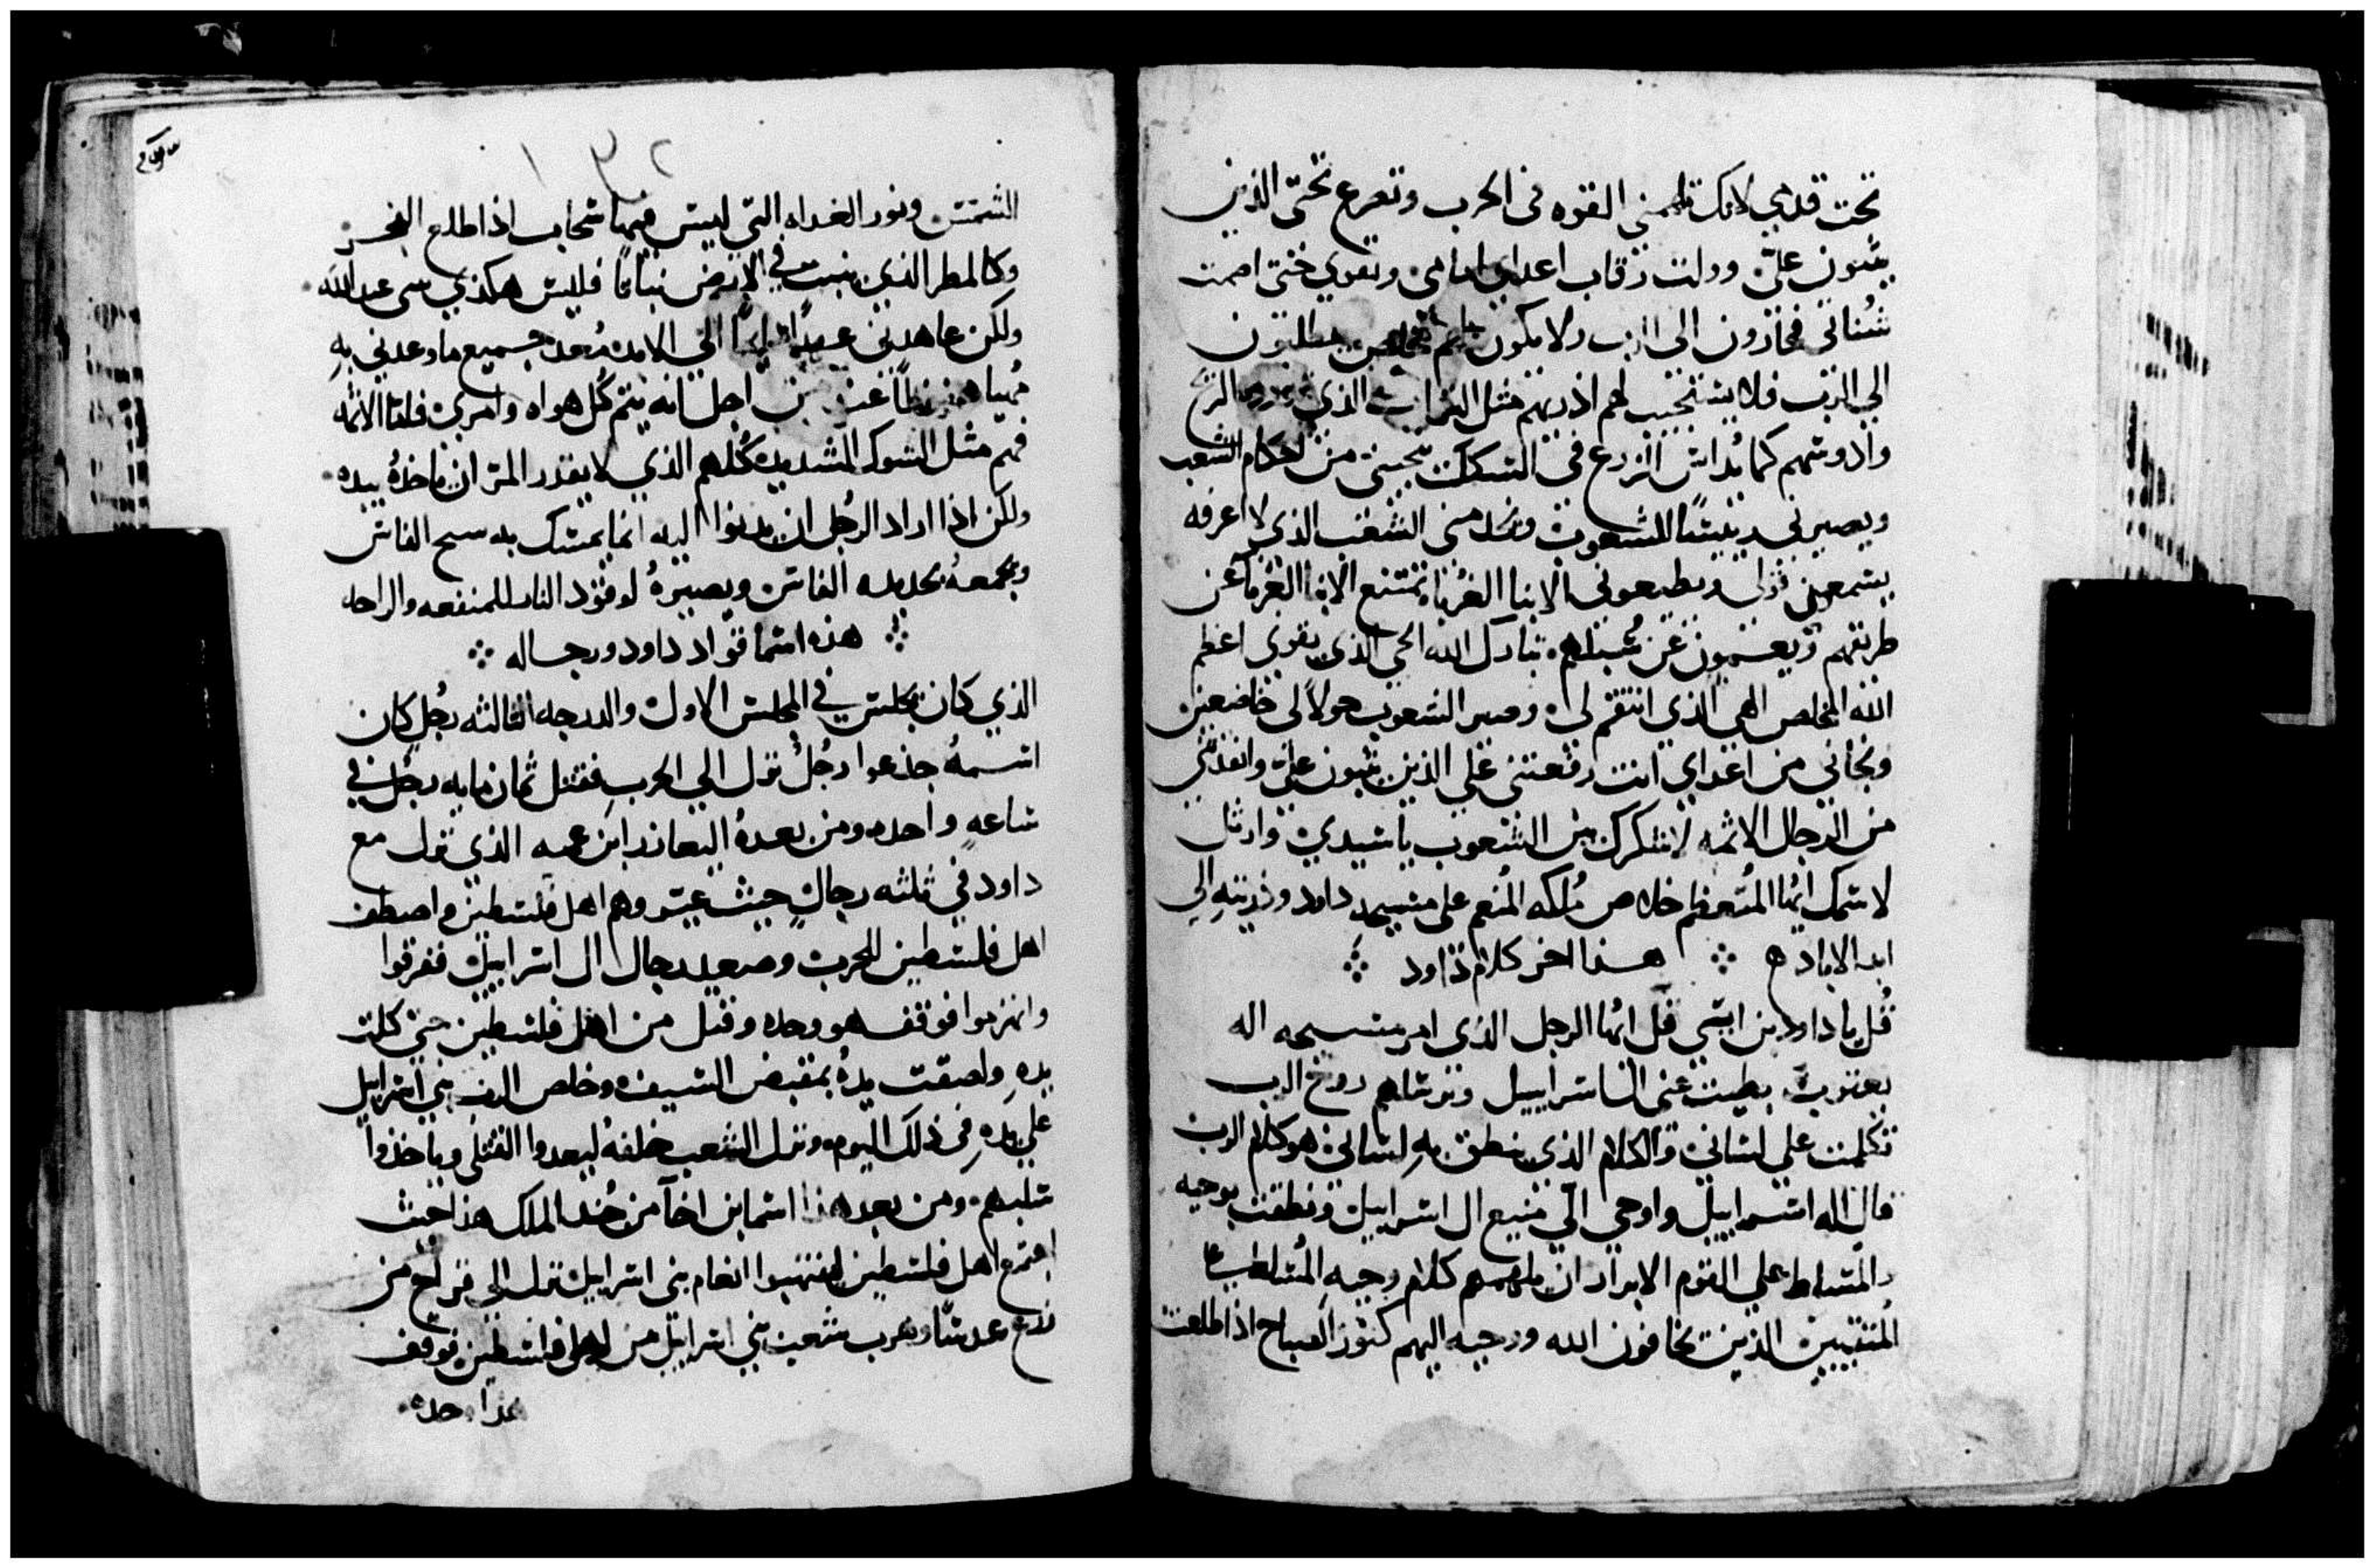 تحت قدمي لانك تلهمني القوه في الحرب وتصرع تحتي الذين
يثبون عليّ وولت رقاب اعداي امامي وتقوي حتى اصمت
شناتي فيجارون الى الرب ولا يكون لهم مخلص يطلبون
الي الرب فلا يستجيب لهم اذريهم مثل التراب الذي تذريه الريح
وادوسهم كما يُداس الزرع في السكك تنجيني من احكام الشعب
ويصيرني رييسًا للشعوب ويخدمني الشعب الذي لا اعرفه
يستمعون قولي ويطيعوني الابنا الغُربا تمتنع الابنا الغربا عن
طريقهم ويعسمون عن سُبلهم تبارك الله الحي الذي يقوي اعظم
الله المخلص الهي الذي انتقم لي وصير الشعوب حولاً لي خاضعين
ونجاني من اعداي انت رفعتني علي الذين يثبون عليّ وانقذتني
من الرجال الاثمه لاشكرك بين الشعوب ياسيدي وارتل
لاسمك ايُها المُتعظم خلاص مُلكه المُنعم على مسيحه داود وذريته الي
ابد الاباد ه ܀ هذا اخر كلام داود ܀
قُل يا داود بن ايسي قل ايُها الرجل الذي امر مسيحه اله
يعقوب بطيت عني ال اسراييل وترتلهم روح الرب
تكلمت علي لساني والكلام الذي ينطق به لساني هو كلام الرب
قال اله اسراييل واوحي اليّ منيع ال اسراييل ونطقت بوحيه
المُتسلط علي القوم الابرار ان يلهمهم كلام وحيه المُتسلط على
المُتقيين الذين يخافون الله ووحيه اليهم كنور الصباح اذا طلعت
١٣٢
الشمس ونور الغداه التي ليس فيها سحاب اذا طلع الفجر
وكالمطر الذي ينبت في الارض نباتًا فليس هكذي بيتي عند الله
ولكن عاهدني عهدًا الي الابد مُعد جميع ما وعدني به
مُهيا محفوظًا من اجل انه يتم كُل هواه وامري فاما الاثمه
فهم مثل الشوك الشديد كُلهم الذي لا يقدر المرء ان ياخذهُ بيده
ولكن اذا اراد الرجُل ان يدنوا اليه انما يمسك بيده الفاس
ويجمعهُ بحديد الفاس ويصيرهُ لوقود النار للمنفعه والراحه
܀ هذه اسما قواد داود ورجاله ܀
الذي كان يجلس في المجلس الاول والدرجه الثالثه رجُل كان
اسمهُ جدعوا رجُل نزل الي الحرب فقتل ثمان مايه رجُل في
ساعه واحده ومن بعدهُ اليعازر ابن عمه الذي نزل مع
داود في ثلثه رجال حيث عيّر وهم اهل فلسطين واصطف
اهل فلسطين للحرب وصعد رجال ال اسراييل ففرقوا
وانهزموا فوقف هو وحده وقتل من اهل فلسطين حتي كلت
يده ولصقت يدهُ بمقبض السيف وخلص الرب بني اسراييل
علي يده في ذلك اليوم ونزل الشعب خلفهُ ليعدوا القتلى وياخذوا
سلبهم ومن بعد هذا اسما بن اخا من جُند الملك هذا حيث
اجتمع اهل فلسطين لينتهبوا انعام بني اسراييل نزل الي قراح من
زرع عدسًا وهرب شعب بني اسراييل من اهل فلسطين فوقف
هذا وحده